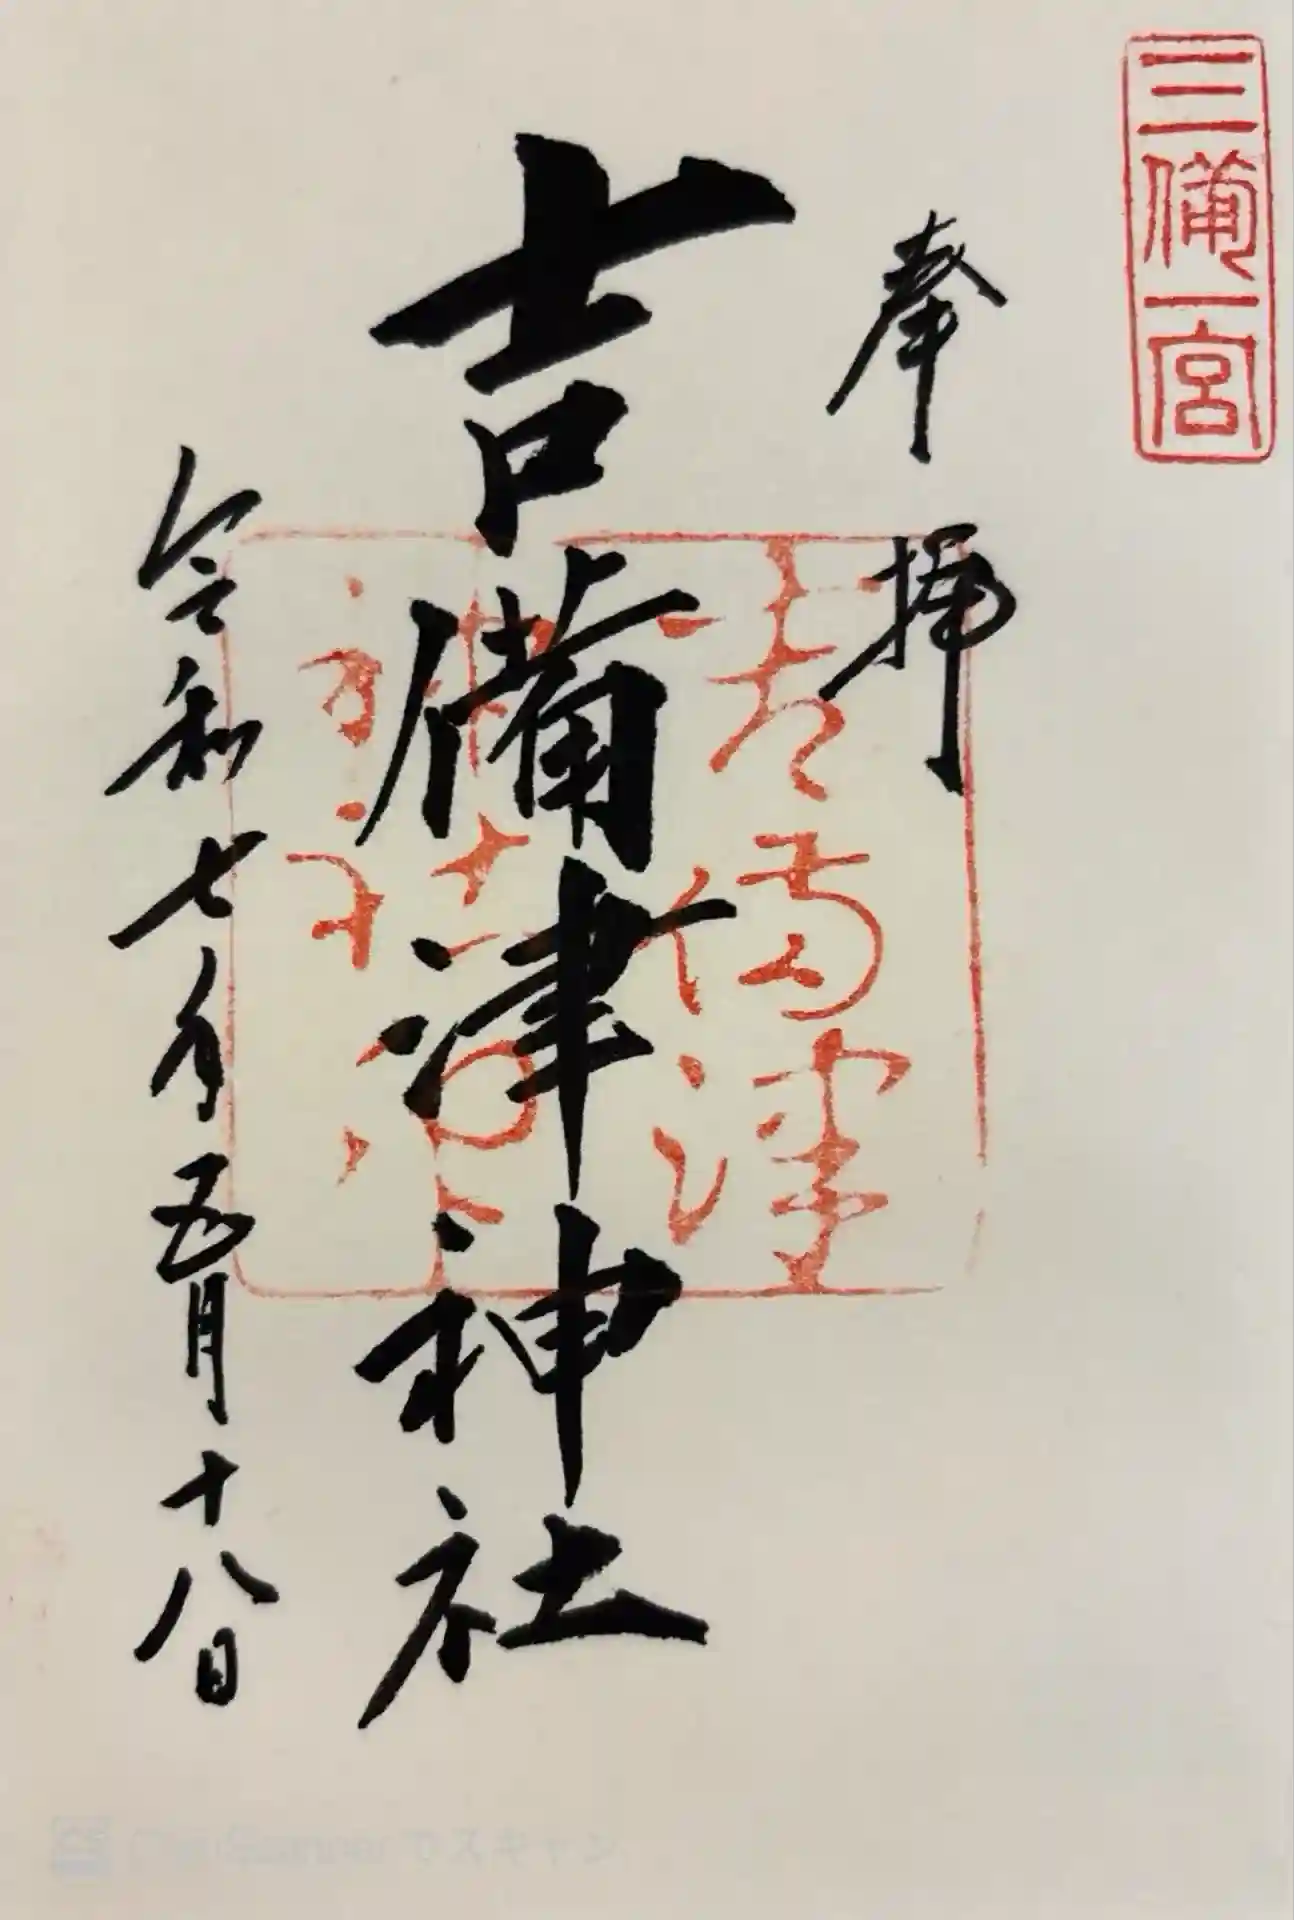 三備一宮
奉拝
吉備津神社
令和七年五月十八日
吉備津
CamScanner でスキャン